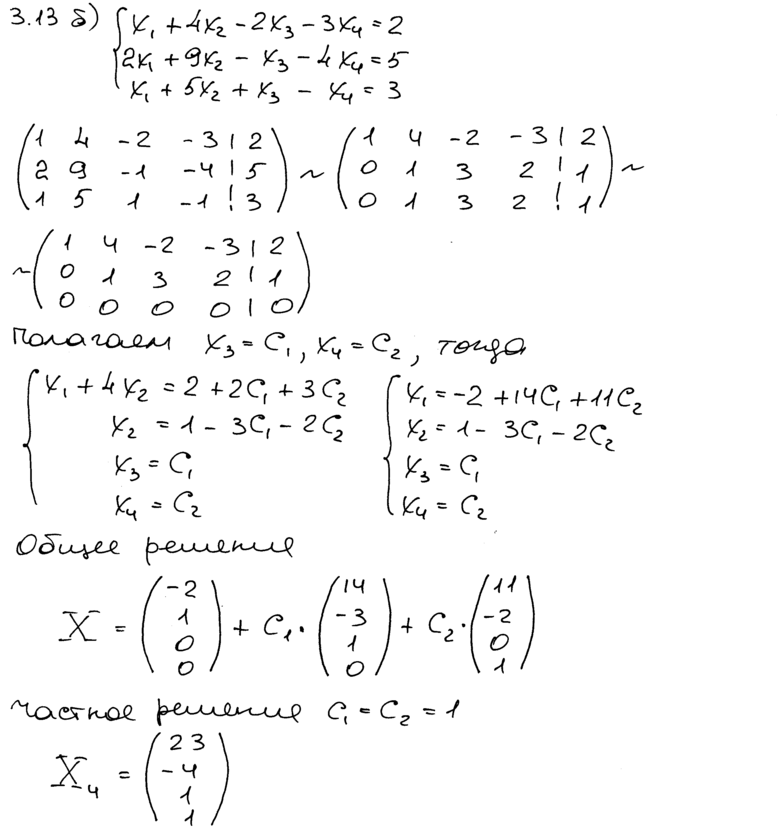 3.13 б) { x₁ + 4x₂ - 2x₃ - 3x₄ = 2
2x₁ + 9x₂ - x₃ - 4x₄ = 5
x₁ + 5x₂ + x₃ - x₄ = 3
( 1 4 -2 -3 | 2 ) ( 1 4 -2 -3 | 2 )
( 2 9 -1 -4 | 5 ) ~ ( 0 1 3 2 | 1 ) ~
( 1 5 1 -1 | 3 ) ( 0 1 3 2 | 1 )
( 1 4 -2 -3 | 2 )
~ ( 0 1 3 2 | 1 )
( 0 0 0 0 | 0 )
Полагаем x₃ = C₁, x₄ = C₂, тогда
{ x₁ + 4x₂ = 2 + 2C₁ + 3C₂ { x₁ = -2 + 14C₁ + 11C₂
x₂ = 1 - 3C₁ - 2C₂ x₂ = 1 - 3C₁ - 2C₂
x₃ = C₁ x₃ = C₁
x₄ = C₂ x₄ = C₂
Общее решение
X = ( -2 1 0 0 ) + C₁ · ( 14 -3 1 0 ) + C₂ · ( 11 -2 0 1 )
Частное решение C₁ = C₂ = 1
X₄ = ( 23 -4 1 1 )